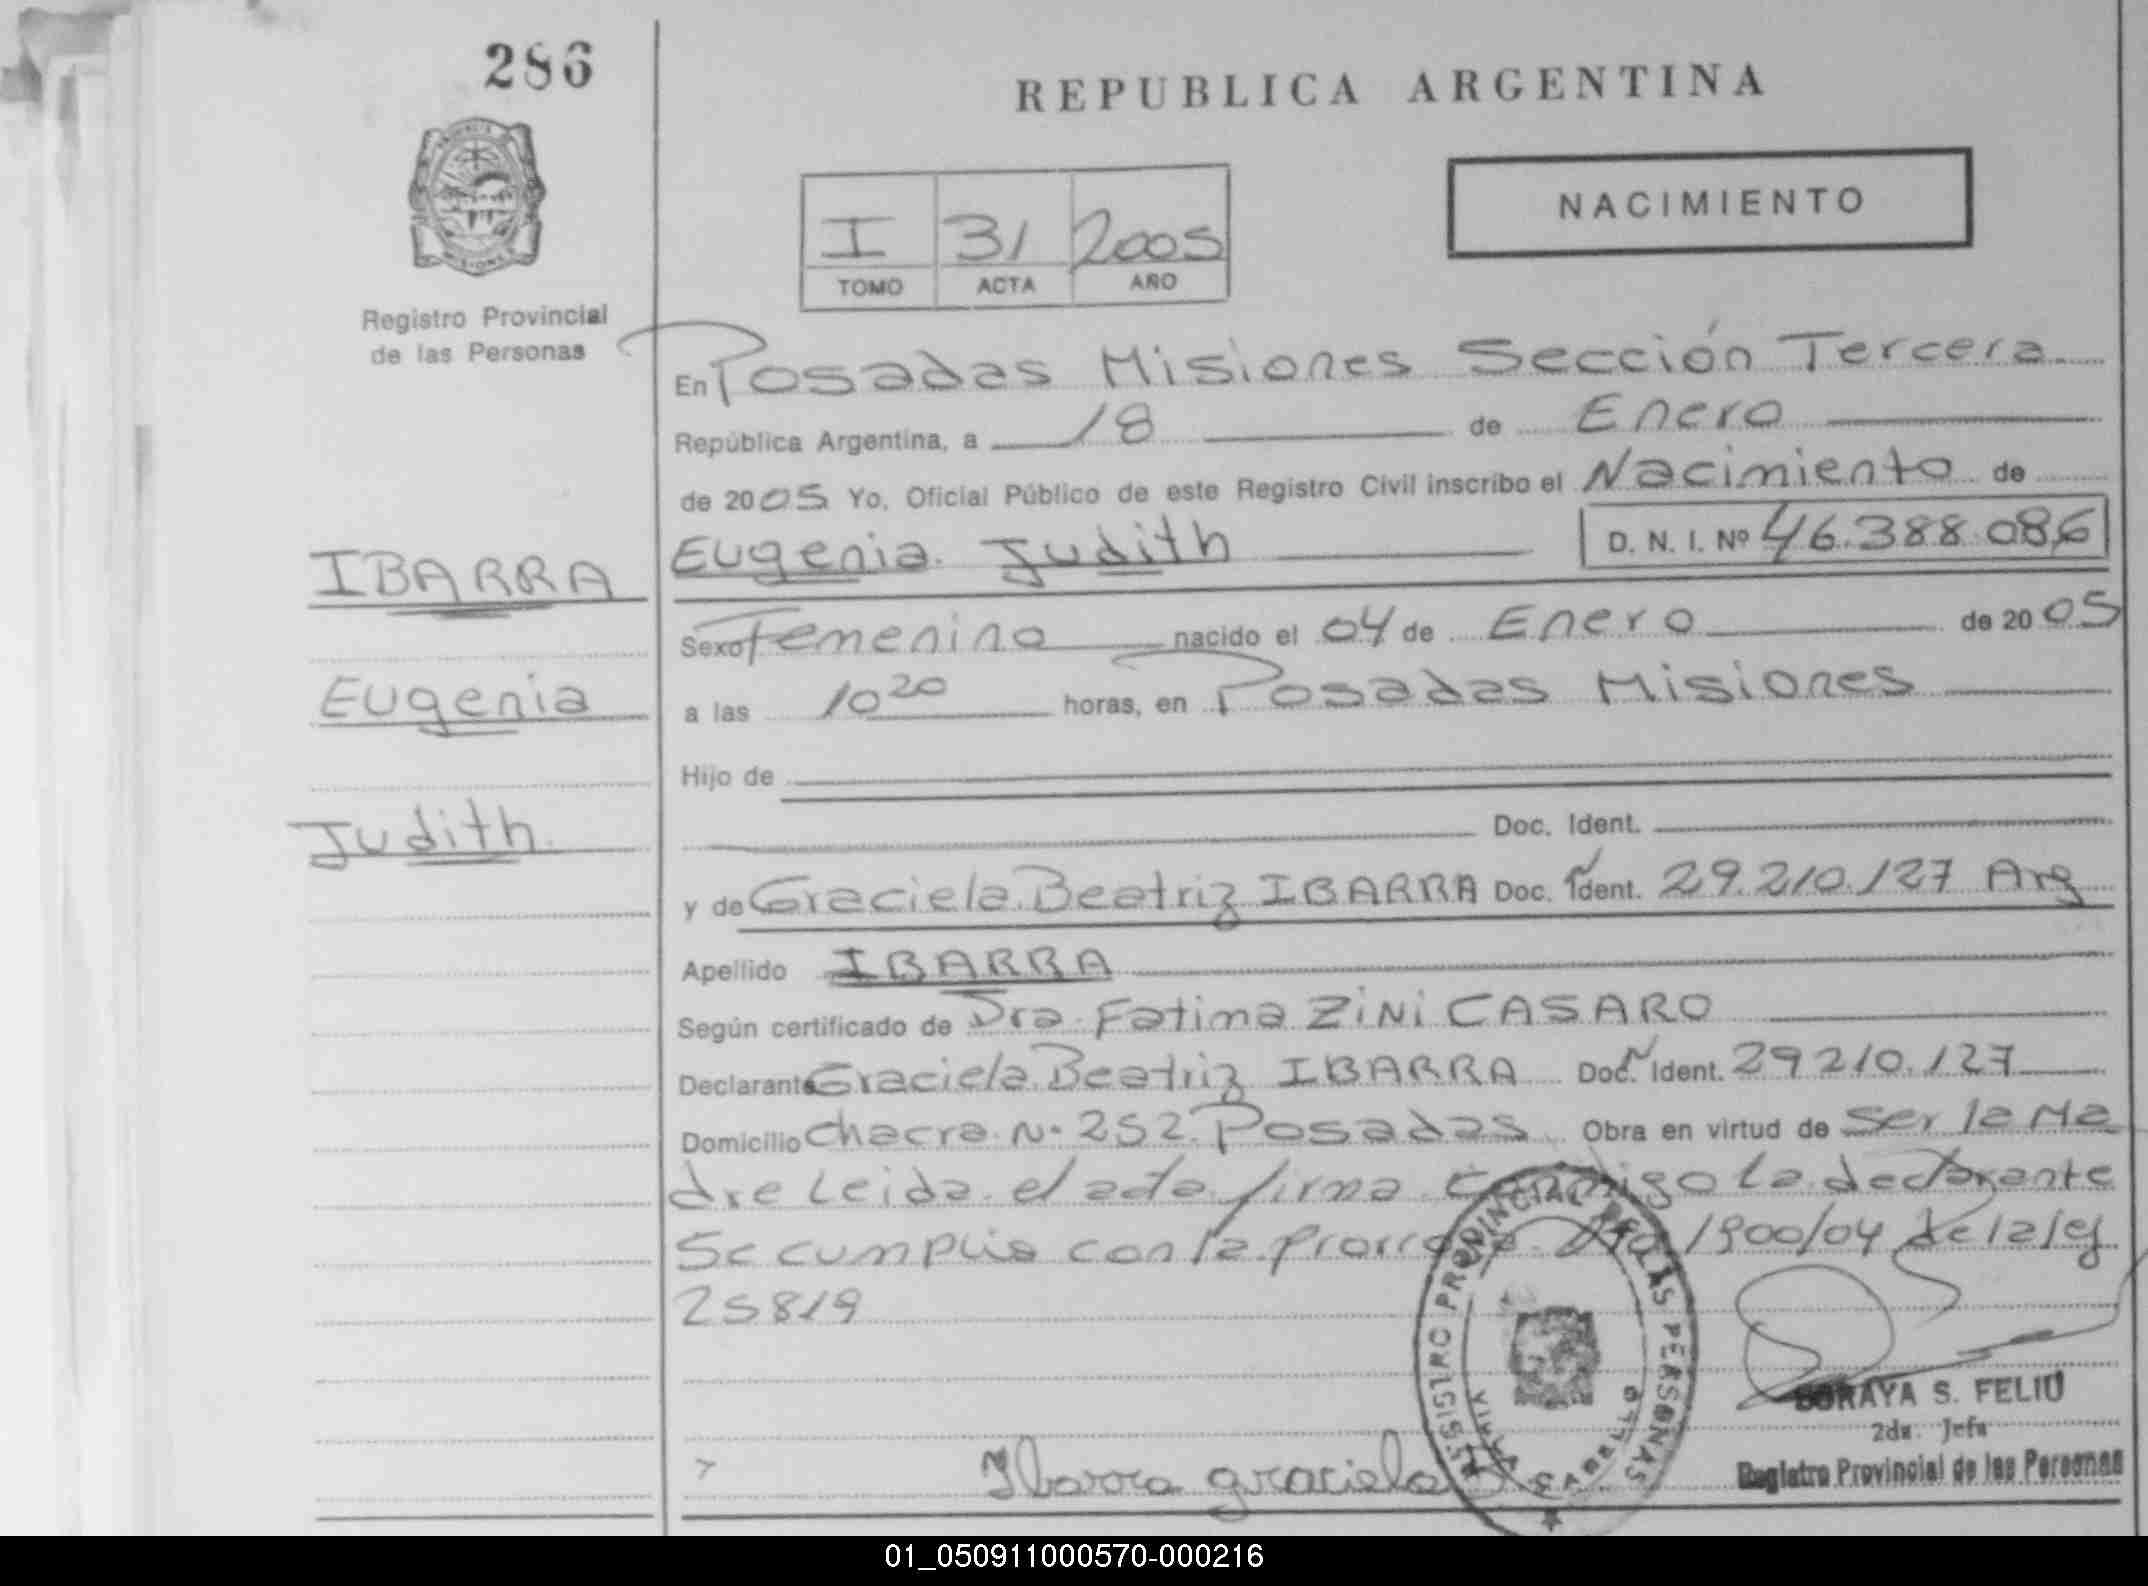 286
REPUBLICA ARGENTINA
NACIMIENTO
I 31 2005
TOMO ACTA AÑO
Registro Provincial
de las Personas
En Posadas Misiones Sección Tercera
República Argentina, a 18 de Enero
de 2005 Yo, Oficial Público de este Registro Civil inscribo el Nacimiento de
IBARRA
Eugenia Judith D. N. I. Nº 46.388.086
Sexo Femenino nacido el 04 de Enero de 2005
Eugenia
a las 10 20 horas, en Posadas Misiones
Hijo de
Judith
Doc. Ident.
y de Graciela Beatriz IBARRA Doc. Ident. 29.210.127 Arg
Apellido IBARRA
Según certificado de Dra. Fatima ZiNi CASARO
Declarante Graciela Beatriz IBARRA Doc. Ident. 29210.127
Domicilio chacra Nº 252 Posadas Obra en virtud de ser la Ma
dre Leida el acta firma conmigo la declarante
Se cumplio con la 1900/04 de la ley
25819
REGISTRO PROVINCIAL DE LAS PERSONAS
VILLA CABELLO
SORAYA S. FELIU
2da. Jefa
Registro Provincial de las Personas
Ibarra graciela
01_050911000570-000216